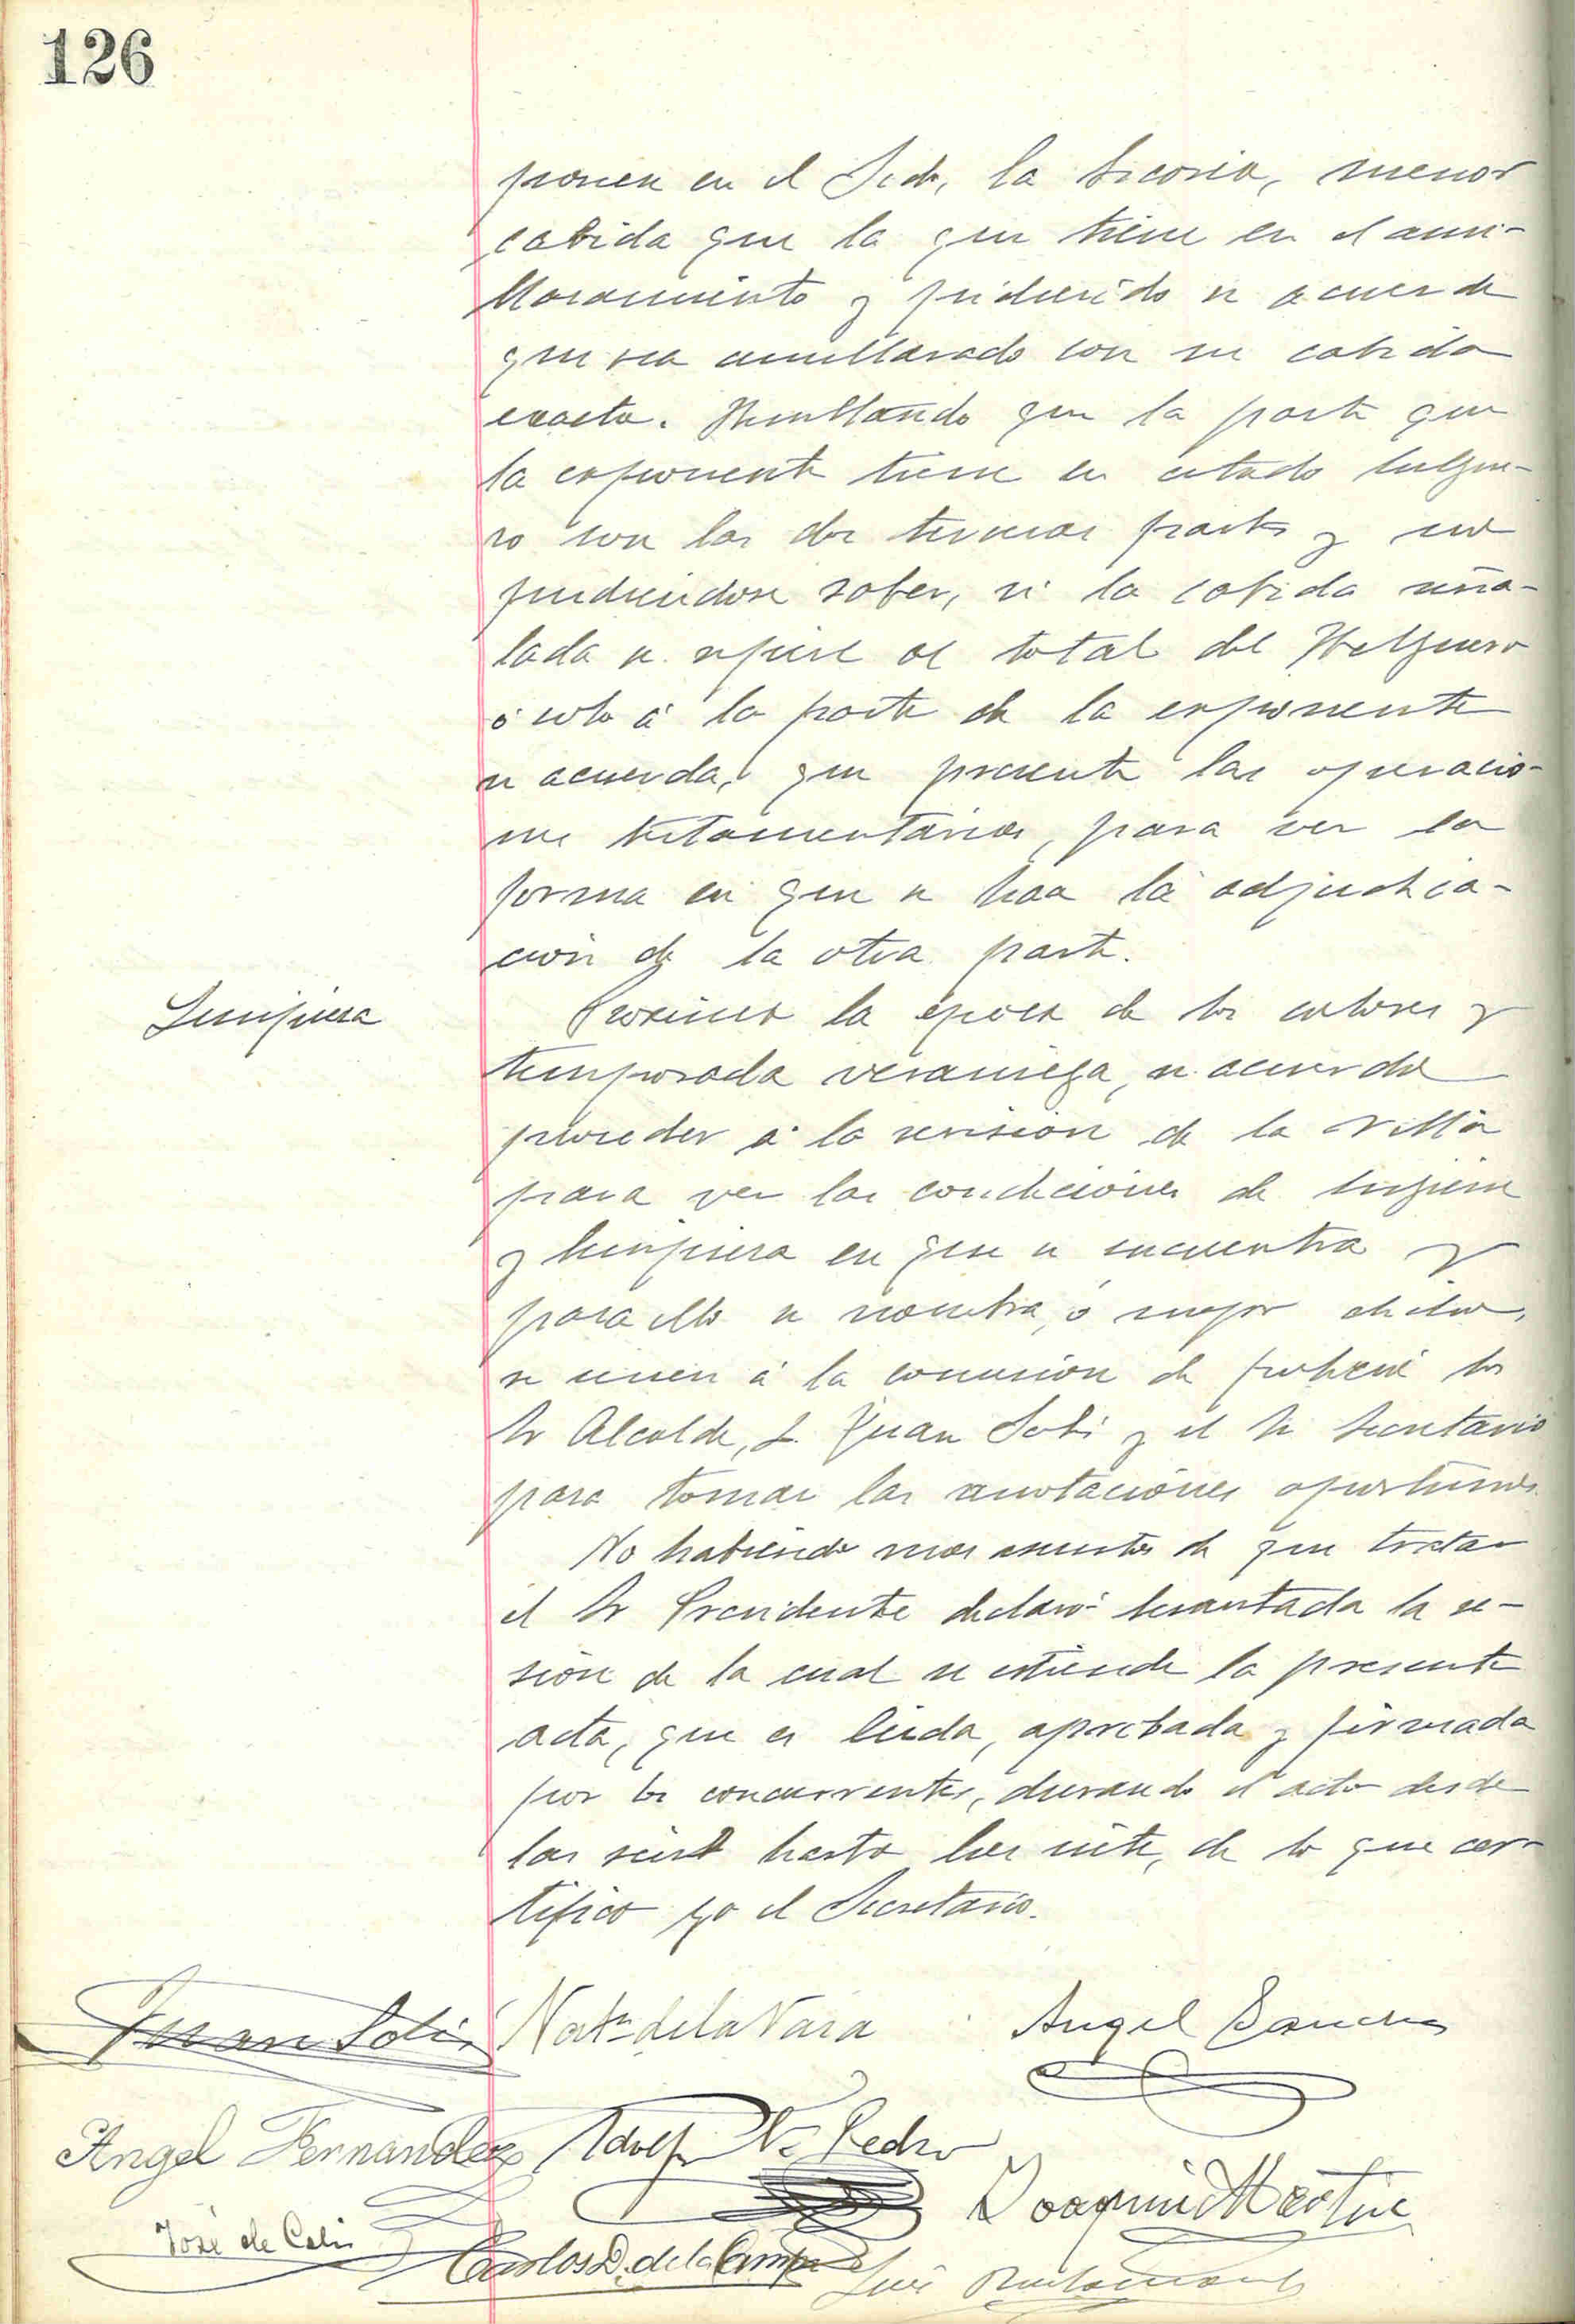 126
ponen en el Sedo, la Sicosia, menor
cabida que la que tiene en el ami-
llaramiento y pidiendo se acuerde
que sea amillarado con su cabida
exacta. Resultando que la parte que
la exponente tiene en citado helgue-
ro son las dos terceras partes y no
pudiendose saber, si la cabida seña-
lada se refiere al total del Helguero
ó solo á la parte de la exponente
se acuerda, que presente las operacio-
nes testamentarias, para ver la
forma en que se haa la adjudica-
ción de la otra parte.
Limpieza
Proxima la época de los calores y
temporada veraniega, se acuerda
proceder á la revisión de la villa
para ver las condiciones de higiene
y limpieza en que se encuentra y
para ello se nombra, ó mejor dicho,
se unen á la comisión de policia los
Sr Alcalde, D. Juan Solis y el Sr Secretario
para tomar las anotaciones oportunas.
No habiendo mas asuntos de que tratar
el Sr Presidente declaró levantada la se-
sión de la cual se estiende la presente
acta, que es leida, aprobada y firmada
por los concurrentes, durando el acto desde
las seis hasta las siete, de lo que cer-
tifico yo el Secretario.
Juan Solis Nat. de la Vara Angel Sanchez
Angel Fernandez Adolfo V. Pedro
Joaquin Martine
José de Celis Carlos D. de la Campa
Luis